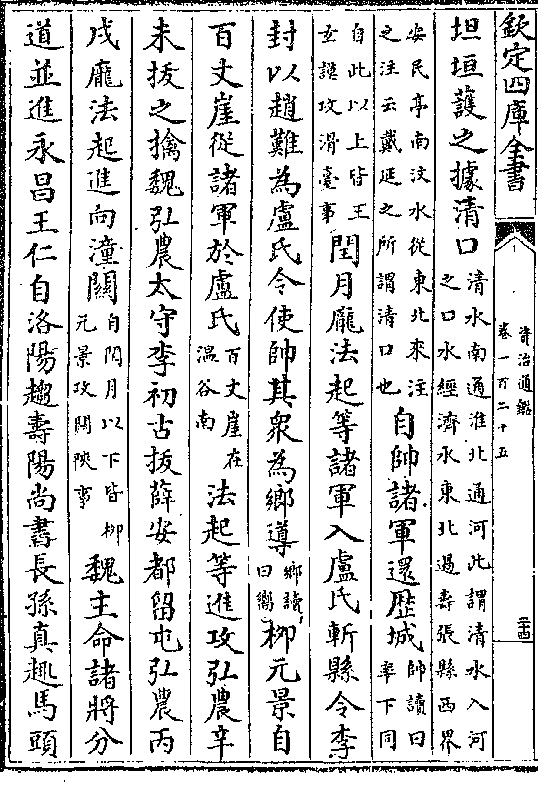 欽定四庫全書
資治通鑑
卷一百二十五
二十四
坦垣護之據清口
清水南通淮北通河此謂清水入河
之口水經濟水東北過壽張縣西界
安民亭南汶水從東北來注
之注云戴延之所謂清口也
自帥諸軍還歴城
帥讀曰
率下同
自此以上皆王
玄謨攻滑臺事
閏月龎法起等諸軍入盧氏斬縣令李
封以趙難為盧氏令使帥其衆為鄉導
鄉讀
曰嚮
柳元景自
百丈崖從諸軍於盧氏
百丈崖在
温谷南
法起等進攻弘農辛
未拔之擒魏弘農太守李初古拔薛安都留屯弘農丙
戌龎法起進向潼關
自閏月以下皆柳
元景攻關陜事
魏主命諸將分
道並進永昌王仁自洛陽趨壽陽尚書長孫真趨馬頭